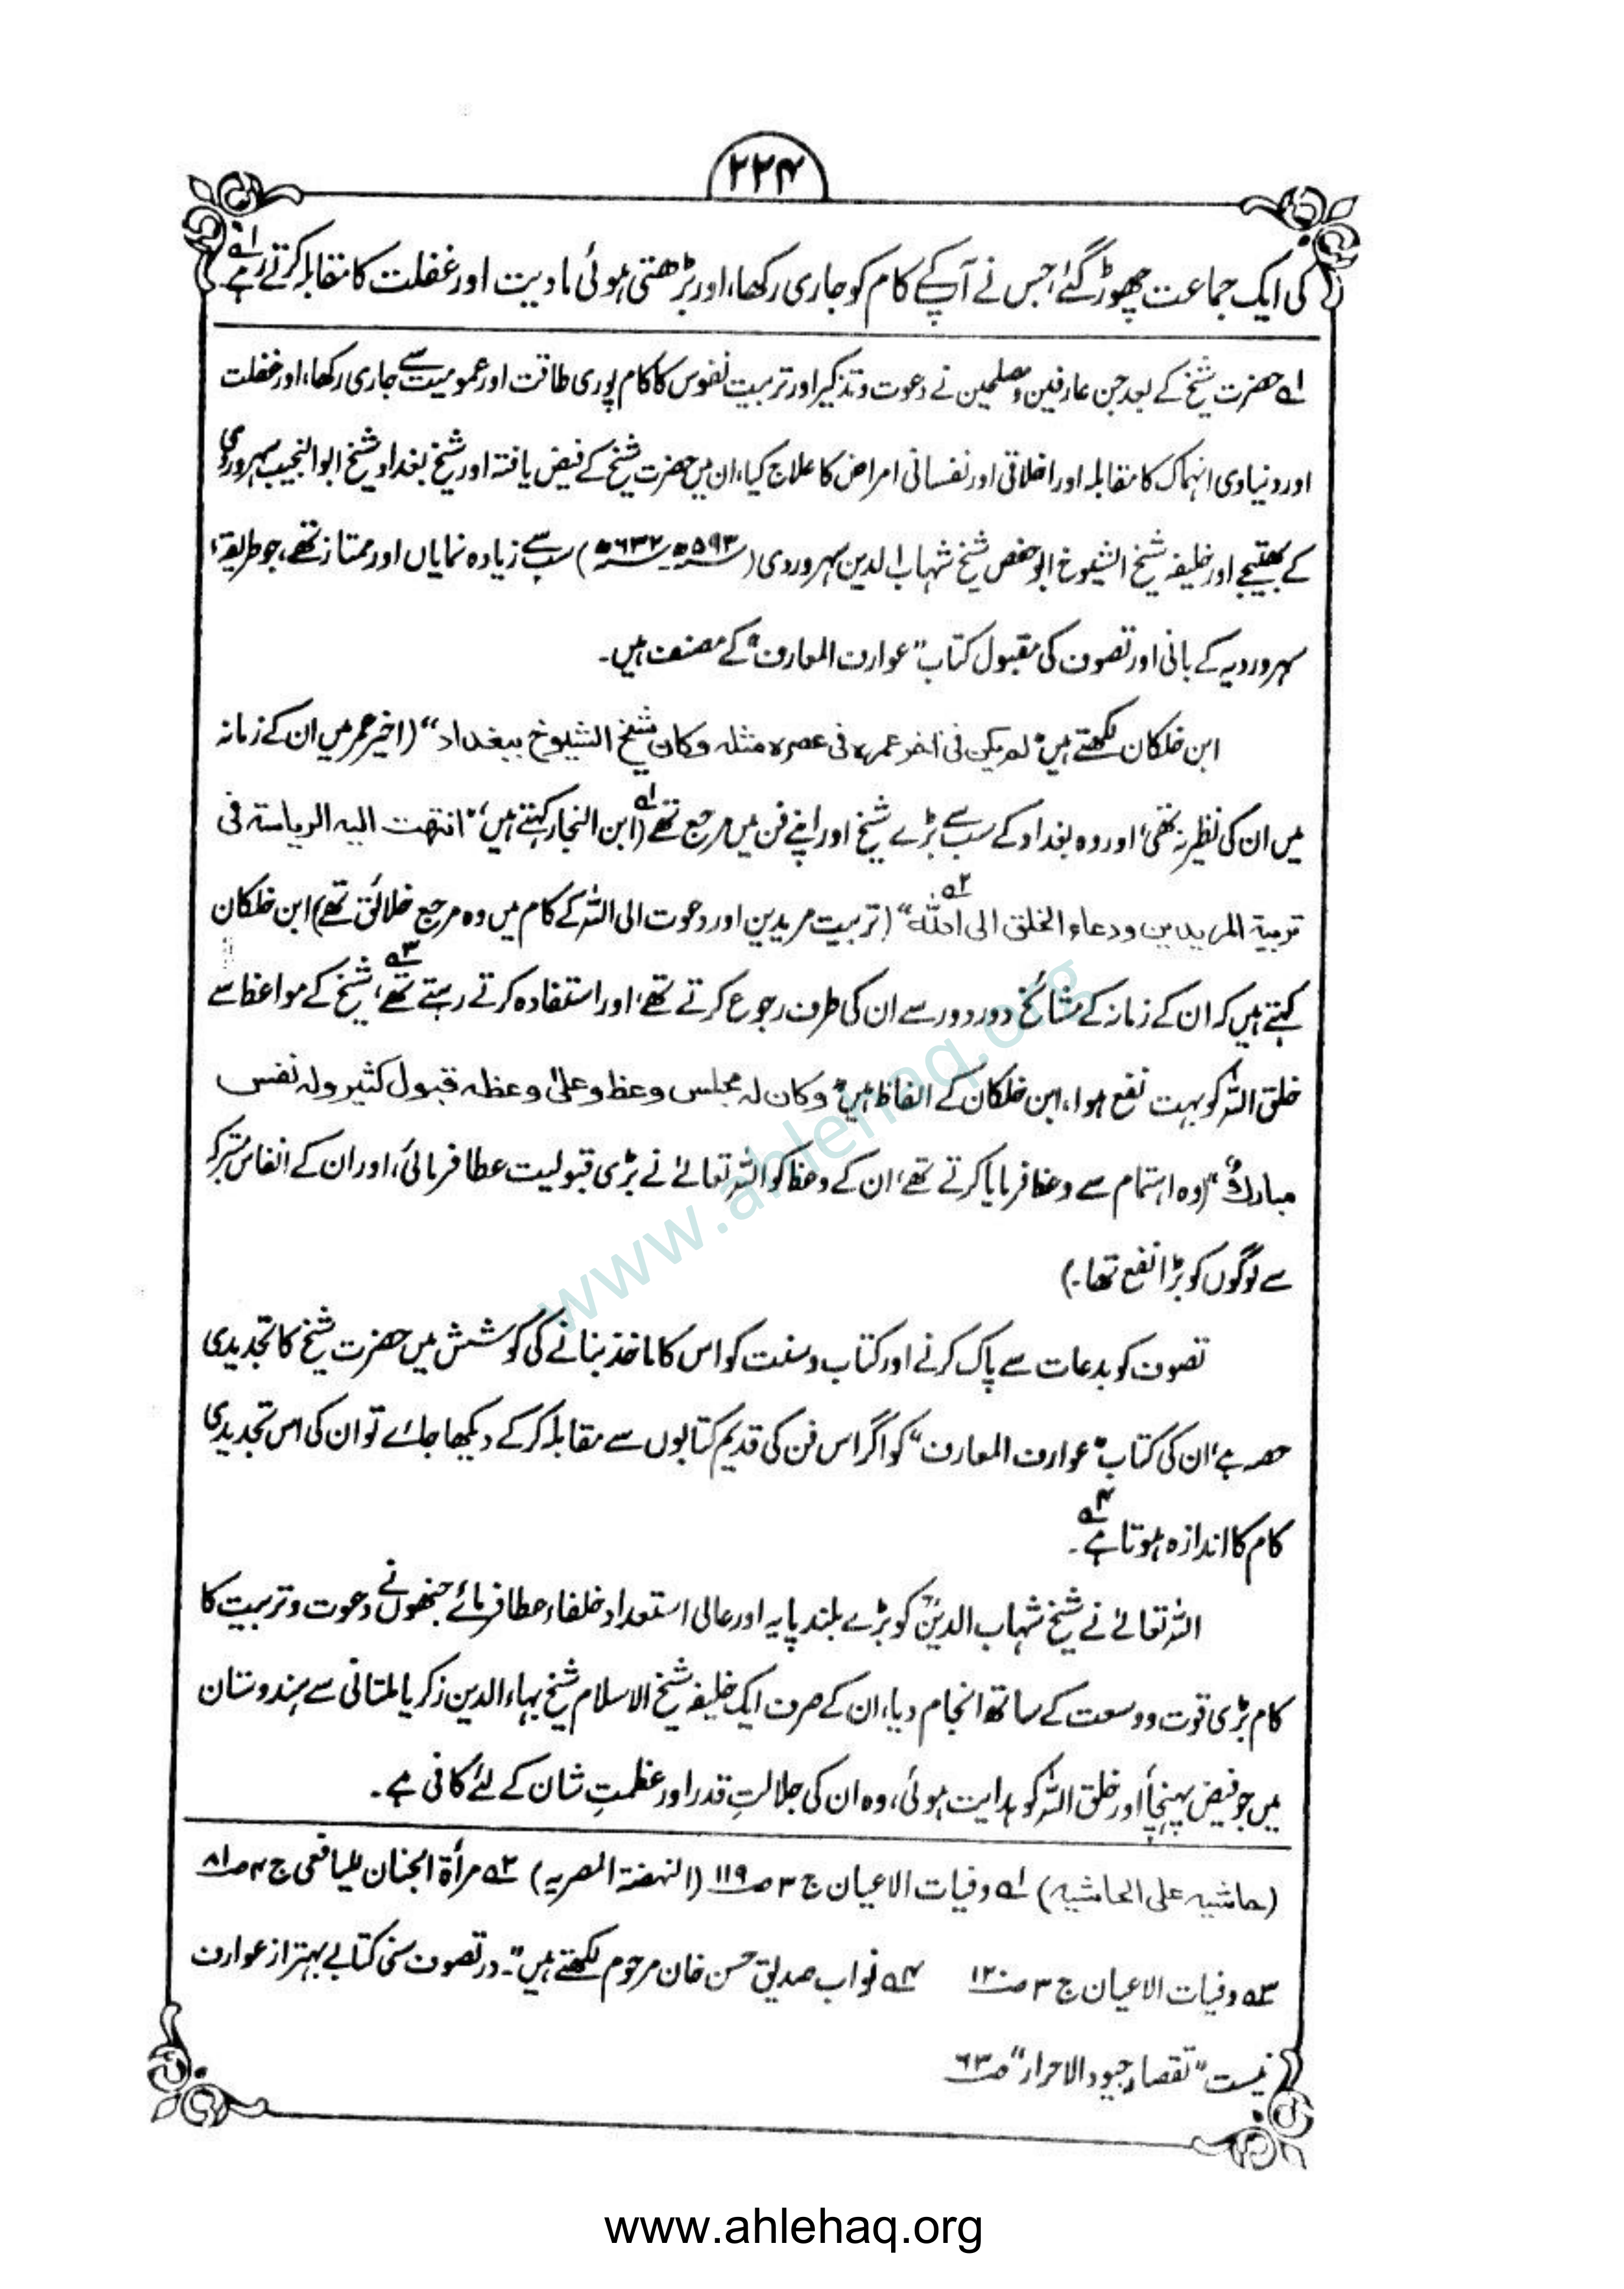 ۲۲۴
کی ایک جماعت چھوڑ گئے، جس نے آپ کے کام کو جاری رکھا، اور بڑھتی ہوئی مادیت اور غفلت کا مقابلہ کرتے رہے ۱ه
۱ه حضرت شیخ کے بعد جن عارفین و مصلحین نے دعوت و تذکیر اور تربیت نفوس کا کام پوری طاقت اور عمومیت سے جاری رکھا، اور غفلت
اور دنیاوی انہماک کا مقابلہ اور اخلاقی اور نفسانی امراض کا علاج کیا، ان میں حضرت شیخ کے فیض یافتہ اور شیخ بغداد شیخ ابو النجیب سہروردی
کے بھتیجے اور خلیفہ شیخ الشیوخ ابو حفص شیخ شہاب الدین سہروردی (۵۹۳ھ-۶۳۲ھ) سب سے زیادہ نمایاں اور ممتاز تھے، جو طریقۂ
سہروردیہ کے بانی اور تصوف کی مقبول کتاب "عوارف المعارف" کے مصنف ہیں۔
ابن خلکان لکھتے ہیں "لم یکن فی اٰخر عمرہ فی عصرہ مثلہ وکان شیخ الشیوخ ببغداد" (اخیر عمر میں ان کے زمانہ
میں ان کی نظیر نہ تھی، اور وہ بغداد کے سب سے بڑے شیخ اور اپنے فن میں مرجع تھے ۱ه (ابن النجار کہتے ہیں، "انتھت الیہ الریاستہ فی
تربیۃ المریدین ودعاء الخلق الی اللہ" ۲ه (تربیت مریدین اور دعوت الی اللہ کے کام میں وہ مرجع خلائق تھے) ابن خلکان
کہتے ہیں کہ ان کے زمانہ کے مشائخ دور دور سے ان کی طرف رجوع کرتے تھے، اور استفادہ کرتے رہتے تھے ۳ه، شیخ کے مواعظ سے
خلق اللہ کو بہت نفع ہوا، ابن خلکان کے الفاظ ہیں "وکان لہ مجلس وعظ وعلیٰ وعظہ قبول کثیر ولہ نفس
مبارک" (وہ اہتمام سے وعظ فرمایا کرتے تھے، ان کے وعظ کو اللہ تعالےٰ نے بڑی قبولیت عطا فرمائی، اور ان کے انفاس متبرکہ
سے لوگوں کو بڑا نفع تھا۔)
تصوف کو بدعات سے پاک کرنے اور کتاب و سنت کو اس کا ماخذ بنانے کی کوشش میں حضرت شیخ کا تجدیدی
حصہ ہے، ان کی کتاب "عوارف المعارف" کو اگر اس فن کی قدیم کتابوں سے مقابلہ کر کے دیکھا جائے تو ان کی اس تجدیدی
کام کا اندازہ ہوتا ہے ۴ه۔
اللہ تعالےٰ نے شیخ شہاب الدینؒ کو بڑے بلند پایہ اور عالی استعداد خلفاء عطا فرمائے جنھوں نے دعوت و تربیت کا
کام بڑی قوت و وسعت کے ساتھ انجام دیا، ان کے صرف ایک خلیفہ شیخ الاسلام شیخ بہاء الدین زکریا ملتانی سے ہندوستان
میں جو فیض پہنچا، اور خلق اللہ کو ہدایت ہوئی، وہ ان کی جلالتِ قدر اور عظمتِ شان کے لئے کافی ہے۔
(حاشیہ علی الحاشیہ) ۱ه وفیات الاعیان ج ۳ ص ۱۱۹ (النہضۃ المصریہ) ۲ه مرأۃ الجنان للیافعی ج ۴ ص ۸۱
۳ه وفیات الاعیان ج ۳ ص ۱۲۰ ۴ه نواب صدیق حسن خان مرحوم لکھتے ہیں "۔ در تصوف سنی کتابے بہتر از عوارف
نیست" تقصار جیود الاحرار" ص ۶۳
www.ahlehaq.org
www.ahlehaq.org